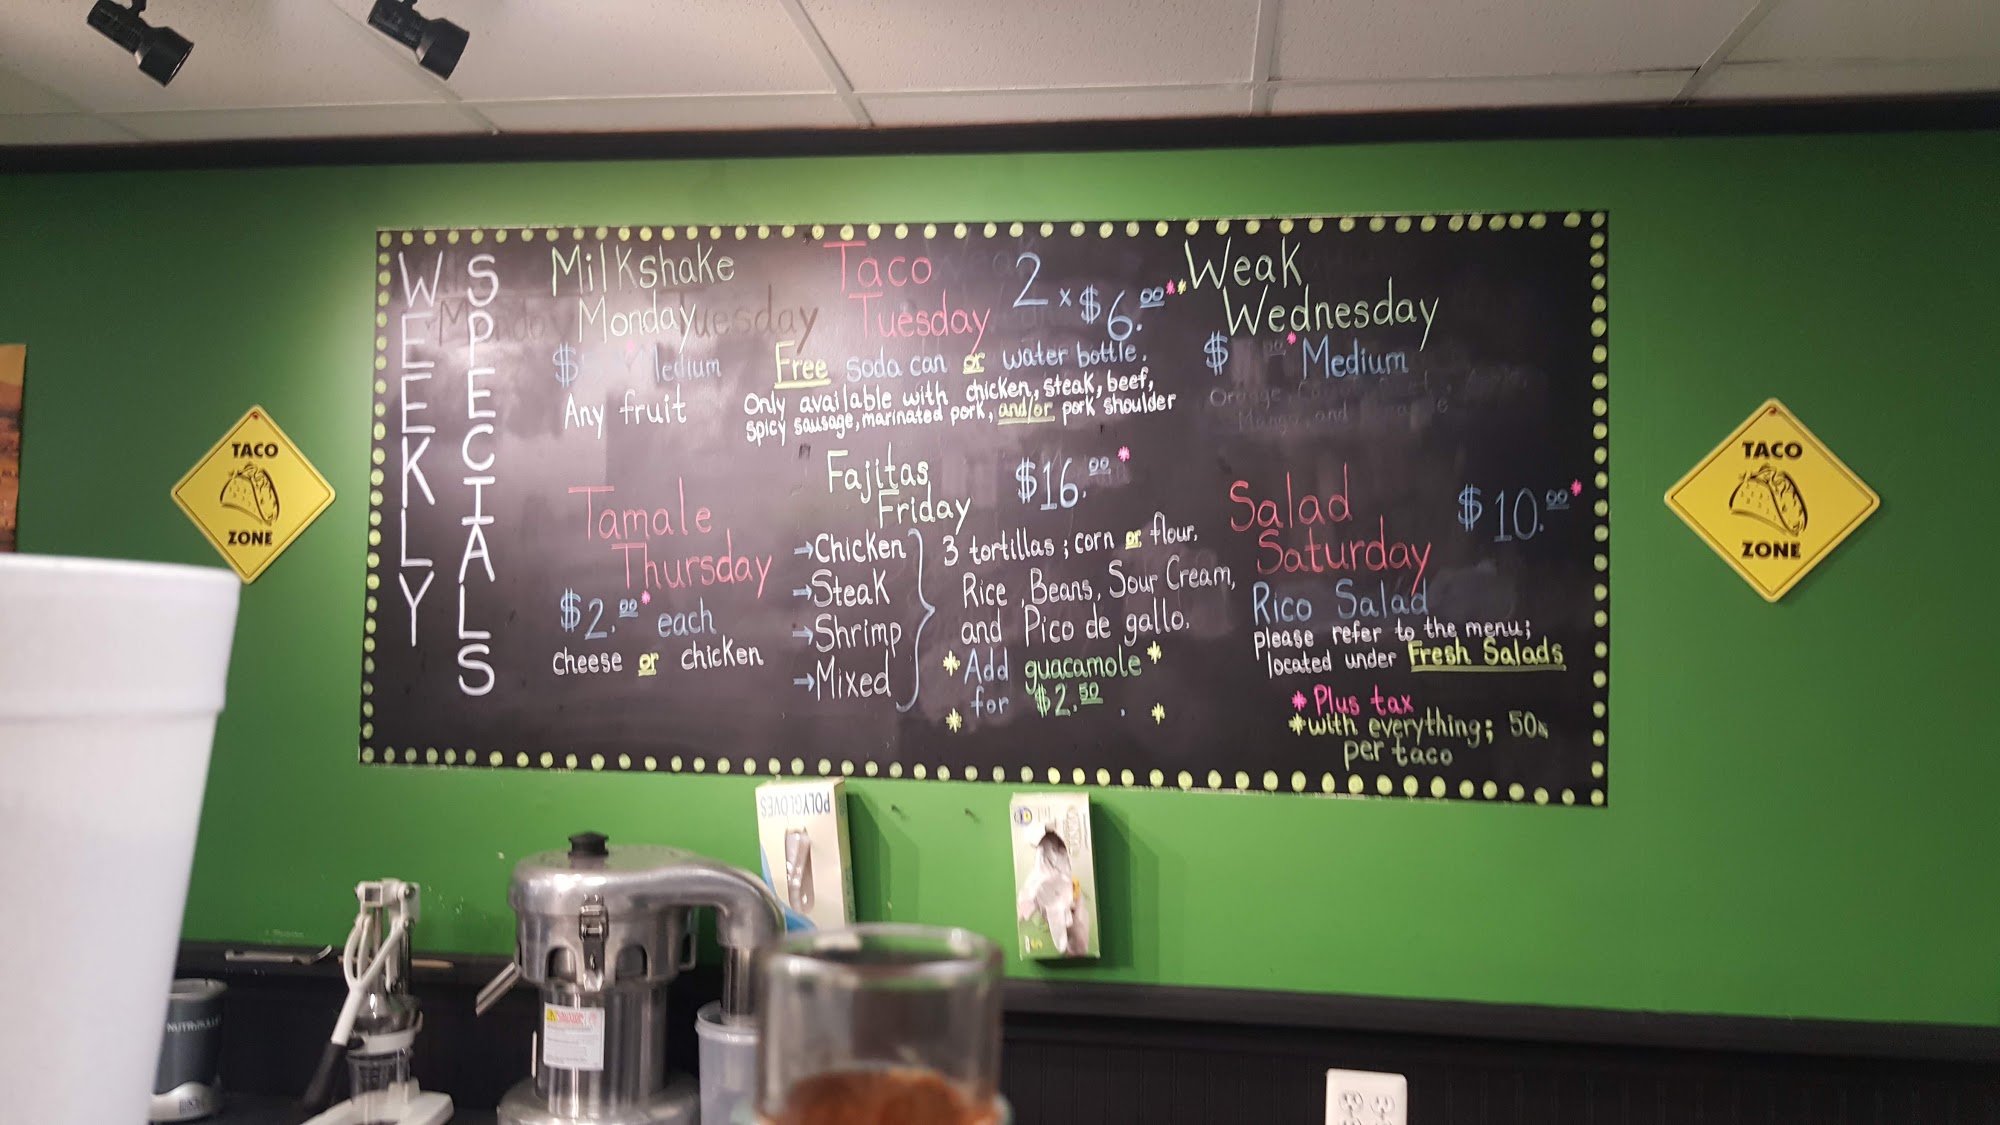 WEEKLY
SPECIALS
Milkshake
Monday
$ Medium
Any fruit
Taco
Tuesday
2 x $6.00**
Free soda can or water bottle.
Only available with chicken, steak, beef,
spicy sausage, marinated pork, and/or pork shoulder
Weak
Wednesday
$ .00* Medium
Orange,
Mango, and
Tamale
Thursday
$2.00* each
cheese or chicken
Fajitas
Friday
$16.00*
→Chicken
→Steak
→Shrimp
→Mixed
3 tortillas; corn or flour.
Rice, Beans, Sour Cream,
and Pico de gallo.
*Add guacamole*
for $2.50
Salad
Saturday
$10.00*
Rico Salad
please refer to the menu;
located under Fresh Salads
*Plus tax
*with everything; 50¢
per taco
TACO
ZONE
TACO
ZONE
POLYGLOVES
NUTRIBULLET